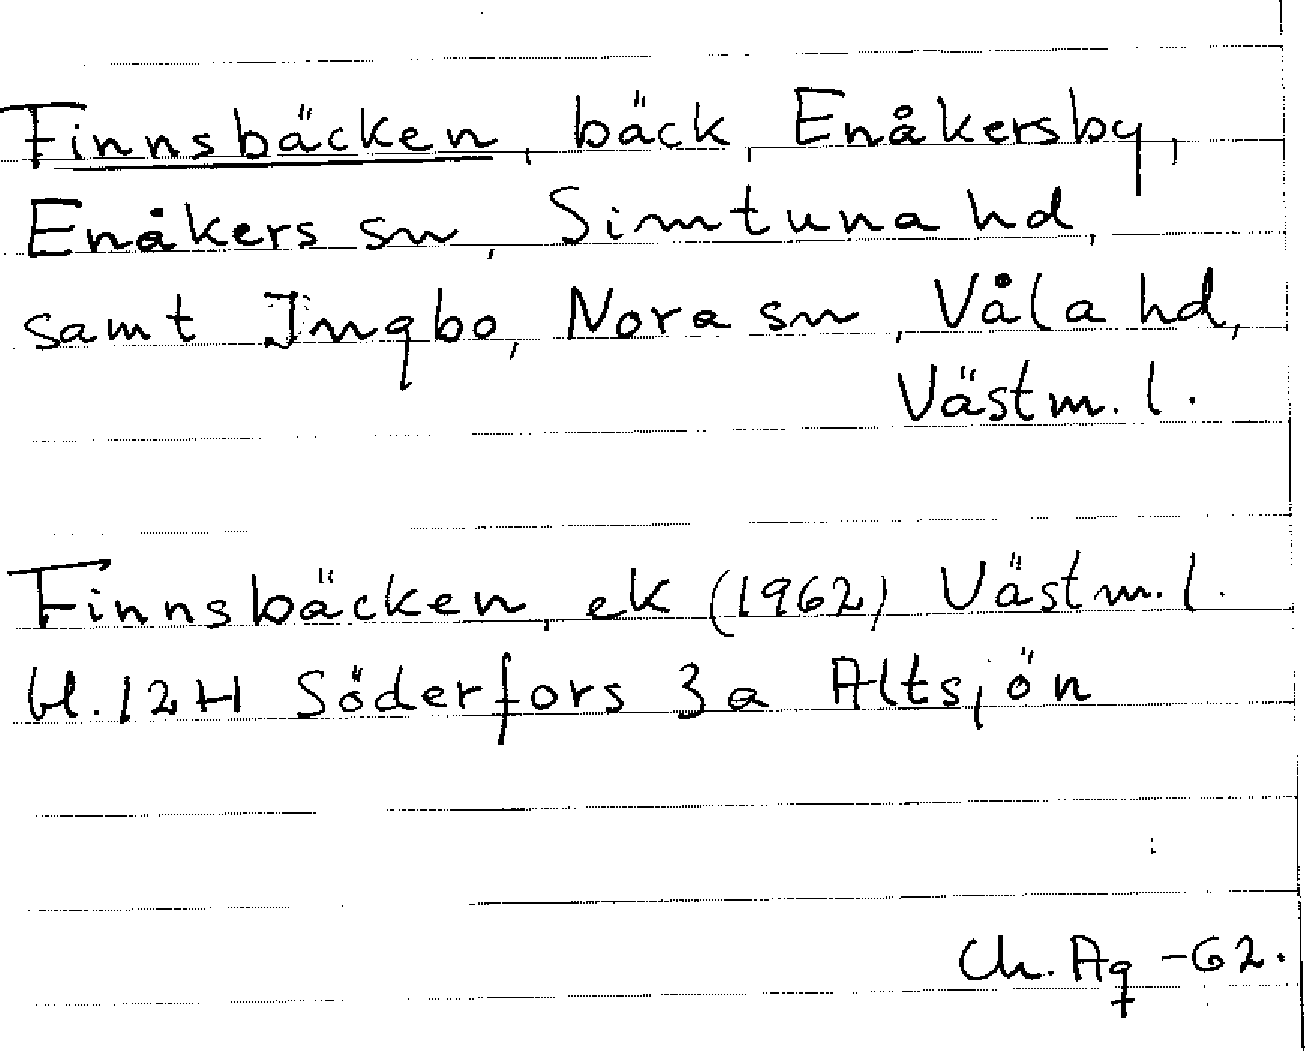 Finnsbäcken, bäck, Enåkersby,
Enåkers sn, Simtuna hd,
samt Ingbo, Nora sn, Våla hd,
Västm. l.
Finnsbäcken, ek (1962) Västm. l.
bl. 12H Söderfors 3a Altsjön
Ch. Ag -62.